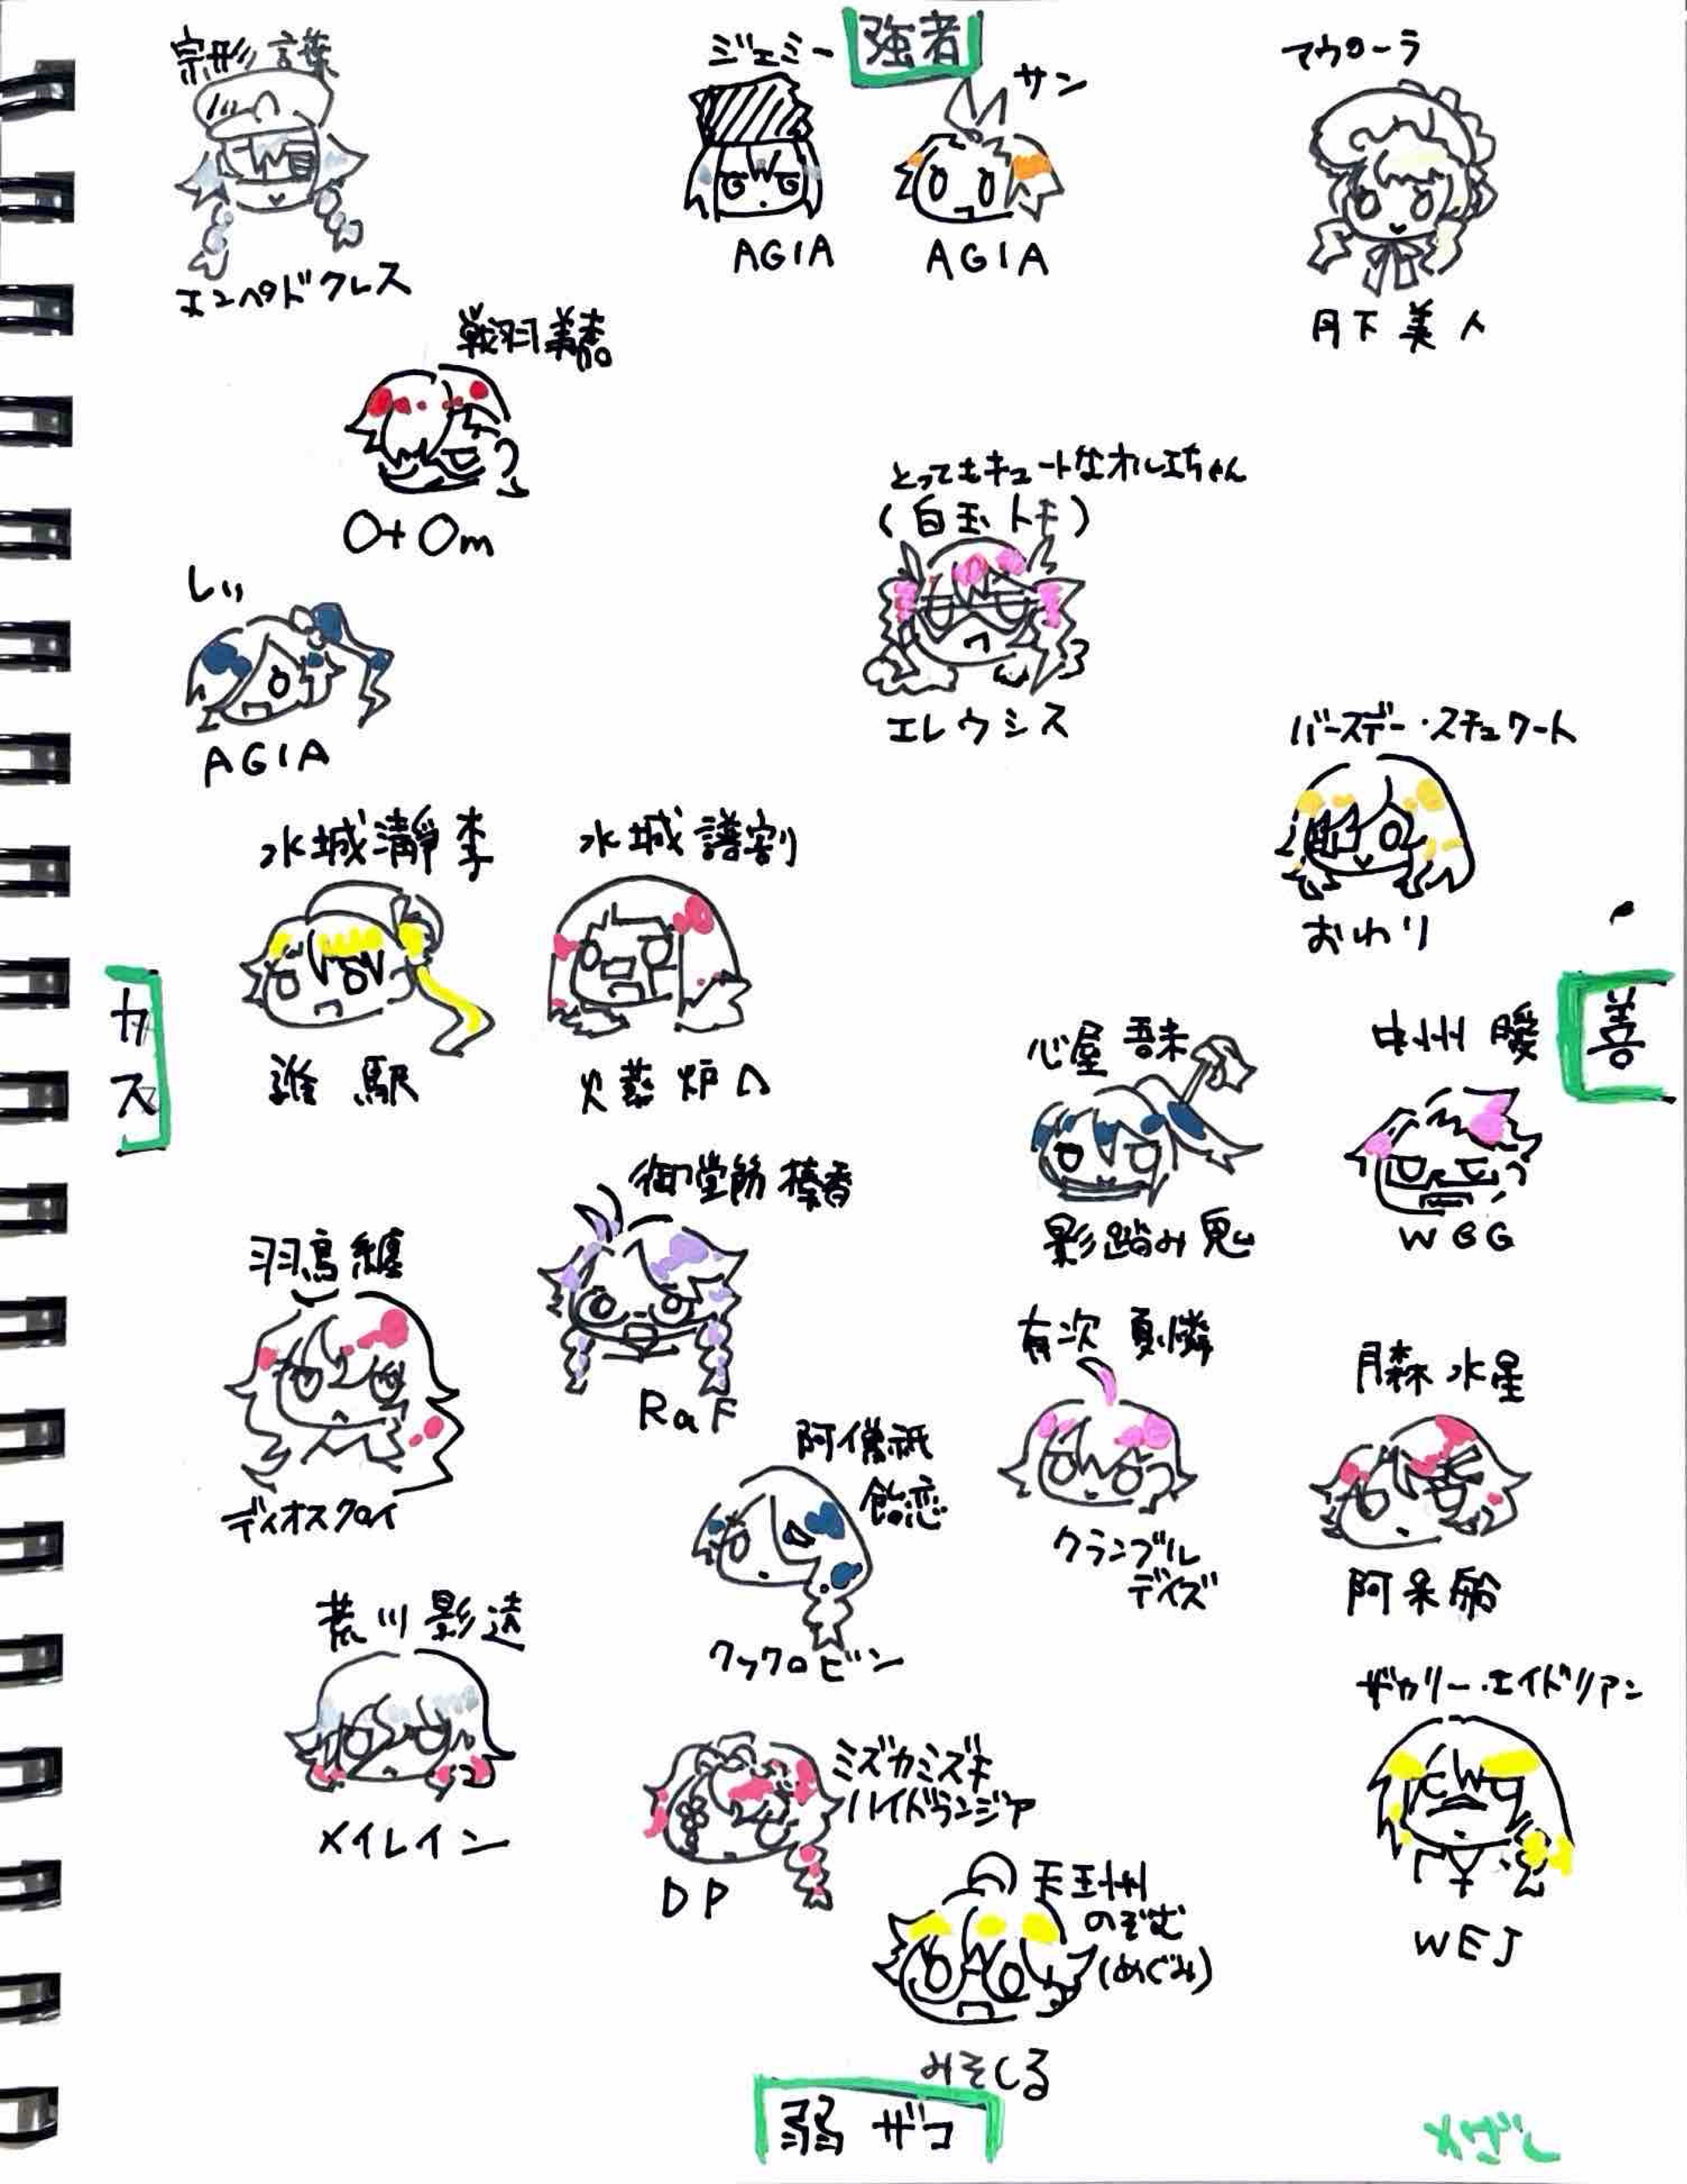 強者
宗形 言葉
エンペドクレス
ジェミー
AGIA
サン
AGIA
マウローラ
月下美人
戦羽美嘉
O+Om
しい
AGIA
とってもキュートなオルエちゃん
(白玉 トモ)
エレウシス
バースデー・スチュワート
おわり
水城瀞李
誰駅
水城 譜割
火葬炉心
カス
善
心屋 吾未
影踏み鬼
中州 暖
WBG
御堂筋 榛香
RaF
羽鳥 纏
ディオスクロイ
有次 夏燐
クランブル
デイズ
月森 水星
阿呆船
阿僧祇
飴恋
クックロビン
荒川 影遠
メイレイン
ミズカミズキ
ハイドランジア
DP
ザカリー・エイドリアン
WEJ
天王州
のぞむ
(めぐみ)
みそしる
弱 ザコ
メざし